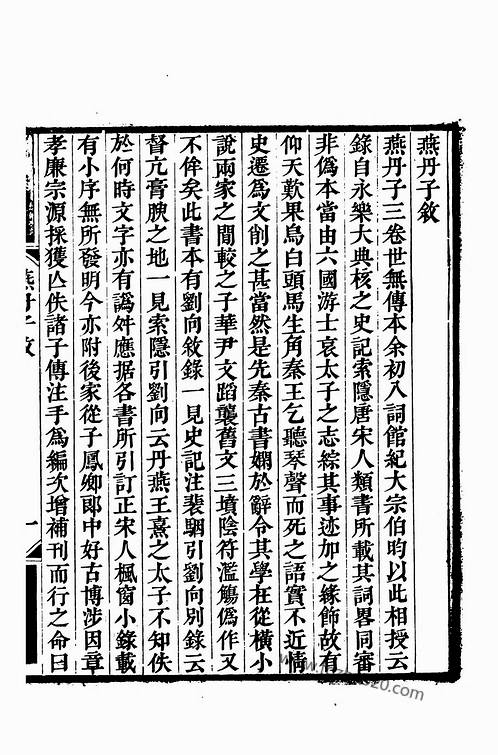 燕丹子敘
燕丹子三卷世無傳本余初入詞館紀大宗伯昀以此相授云
錄自永樂大典核之史記索隱唐宋人類書所載其詞畧同審
非僞本當由六國游士哀太子之志綜其事迹加之緣飾故有
仰天歎果烏白頭馬生角秦王乞聽琴聲而死之語實不近情
史遷爲文削之甚當然是先秦古書嫻於辭令其學在從橫小
說兩家之間較之子華尹文蹈襲舊文三墳陰符濫觴僞作又
不侔矣此書本有劉向敘錄一見史記注裴駰引劉向別錄云
督亢膏腴之地一見索隱引劉向云丹燕王熹之太子不知佚
於何時文字亦有譌舛應据各書所引訂正宋人楓窗小錄載
有小序無所發明今亦附後家從子鳳卿郎中好古博涉因章
孝廉宗源採獲亾佚諸子傳注手爲編次增補刊而行之命曰
燕丹子敘
一